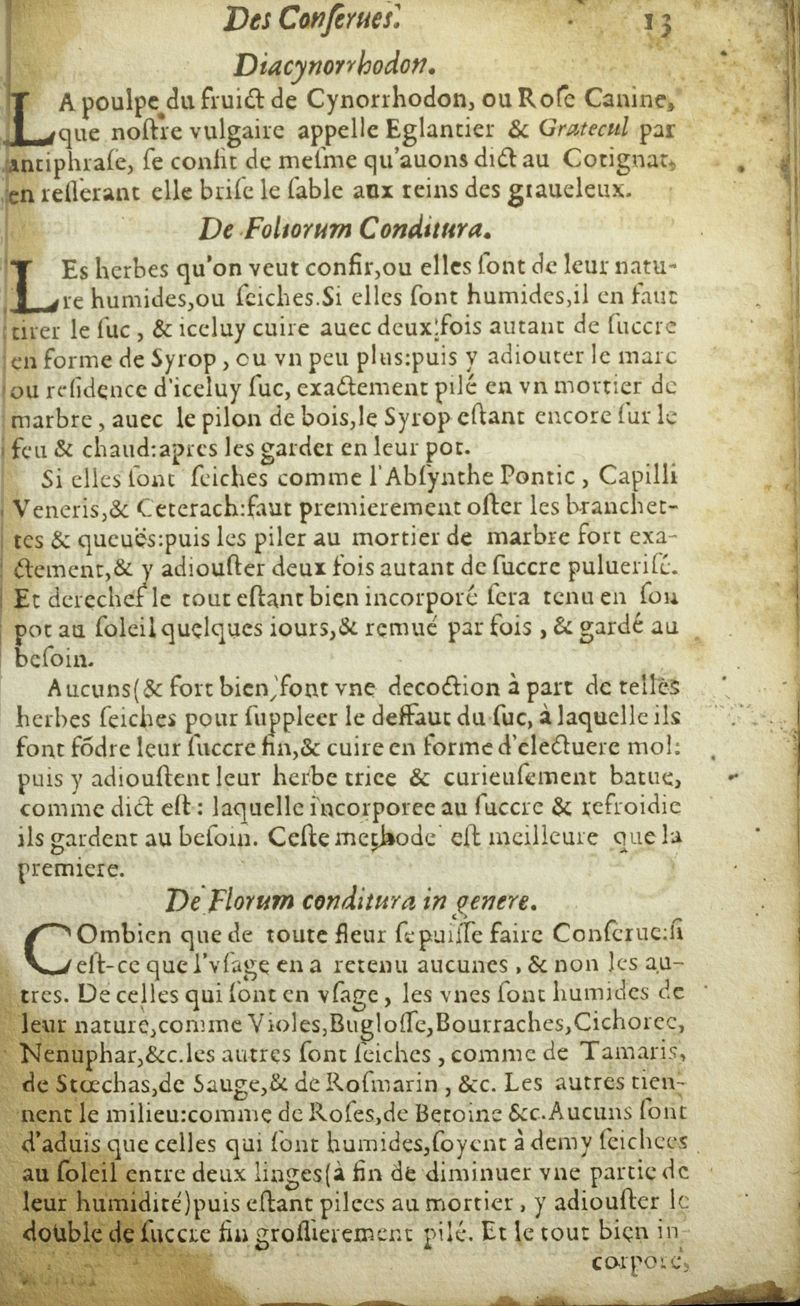 Des Conſerues. 13
Diacynorrhodon.
LA poulpe du fruict de Cynorrhodon, ou Roſe Canine,
que noſtre vulgaire appelle Eglantier & Gratecul par
antiphraſe, ſe confit de meſme qu'auons dict au Cotignat,
en reſſerant elle briſe le ſable aux reins des graueleux.
De Foliorum Conditura.
LEs herbes qu'on veut confir,ou elles ſont de leur natu-
re humides,ou ſeiches.Si elles ſont humides,il en faut
tirer le ſuc , & iceluy cuire auec deux fois autant de ſuccre
en forme de Syrop , ou vn peu plus:puis y adiouter le marc
ou reſidence d'iceluy ſuc, exactement pilé en vn mortier de
marbre , auec le pilon de bois,le Syrop eſtant encore ſur le
feu & chaud:apres les garder en leur pot.
Si elles ſont ſeiches comme l'Abſynthe Pontic , Capilli
Veneris,& Ceterach:faut premierement oſter les branchet-
tes & queuës:puis les piler au mortier de marbre fort exa-
ctement,& y adiouſter deux fois autant de ſuccre pulueriſé.
Et derechef le tout eſtant bien incorporé ſera tenu en ſon
pot au ſoleil quelques iours,& remué par fois , & gardé au
beſoin.
Aucuns(& fort bien)font vne decoction à part de telles
herbes ſeiches pour ſuppleer le deffaut du ſuc, à laquelle ils
font fōdre leur ſuccre fin,& cuire en forme d'electuere mol:
puis y adiouſtent leur herbe triee & curieuſement batue,
comme dict eſt : laquelle incorporee au ſuccre & refroidie
ils gardent au beſoin. Ceſte methode eſt meilleure que la
premiere.
De Florum conditura in genere.
COmbien que de toute fleur ſe puiſſe faire Conſerue:ſi
eſt-ce que l'vſage en a retenu aucunes , & non les au-
tres. De celles qui ſont en vſage , les vnes ſont humides de
leur nature,comme Violes,Bugloſſe,Bourraches,Cichoree,
Nenuphar,&c.les autres ſont ſeiches , comme de Tamaris,
de Stœchas,de Sauge,& de Roſmarin , &c. Les autres tien-
nent le milieu:comme de Roſes,de Betoine &c.Aucuns ſont
d'aduis que celles qui ſont humides,ſoyent à demy ſeichees
au ſoleil entre deux linges(à fin de diminuer vne partie de
leur humidité)puis eſtant pilees au mortier , y adiouſter le
double de ſuccre fin groſſierement pilé. Et le tout bien in-
corporé,